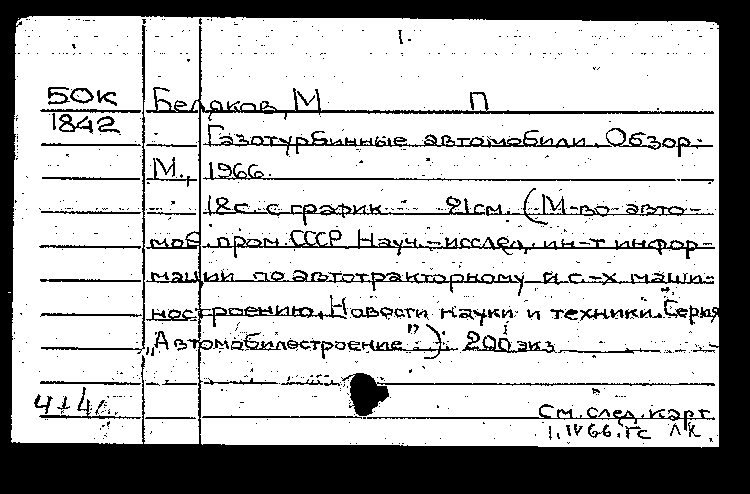 1.
БОК Беляков, М П
1842 Газотурбинные автомобили. Обзор.
М., 1966.
18с. с график 21см. (М-во авто-
моб. пром. СССР. Науч.-исслед. ин-т инфор-
мации по автотракторному и с.-х. маши-
ностроению. Новости науки и техники. Серия
„Автомобилестроение"). 200 экз
См. след. карт.